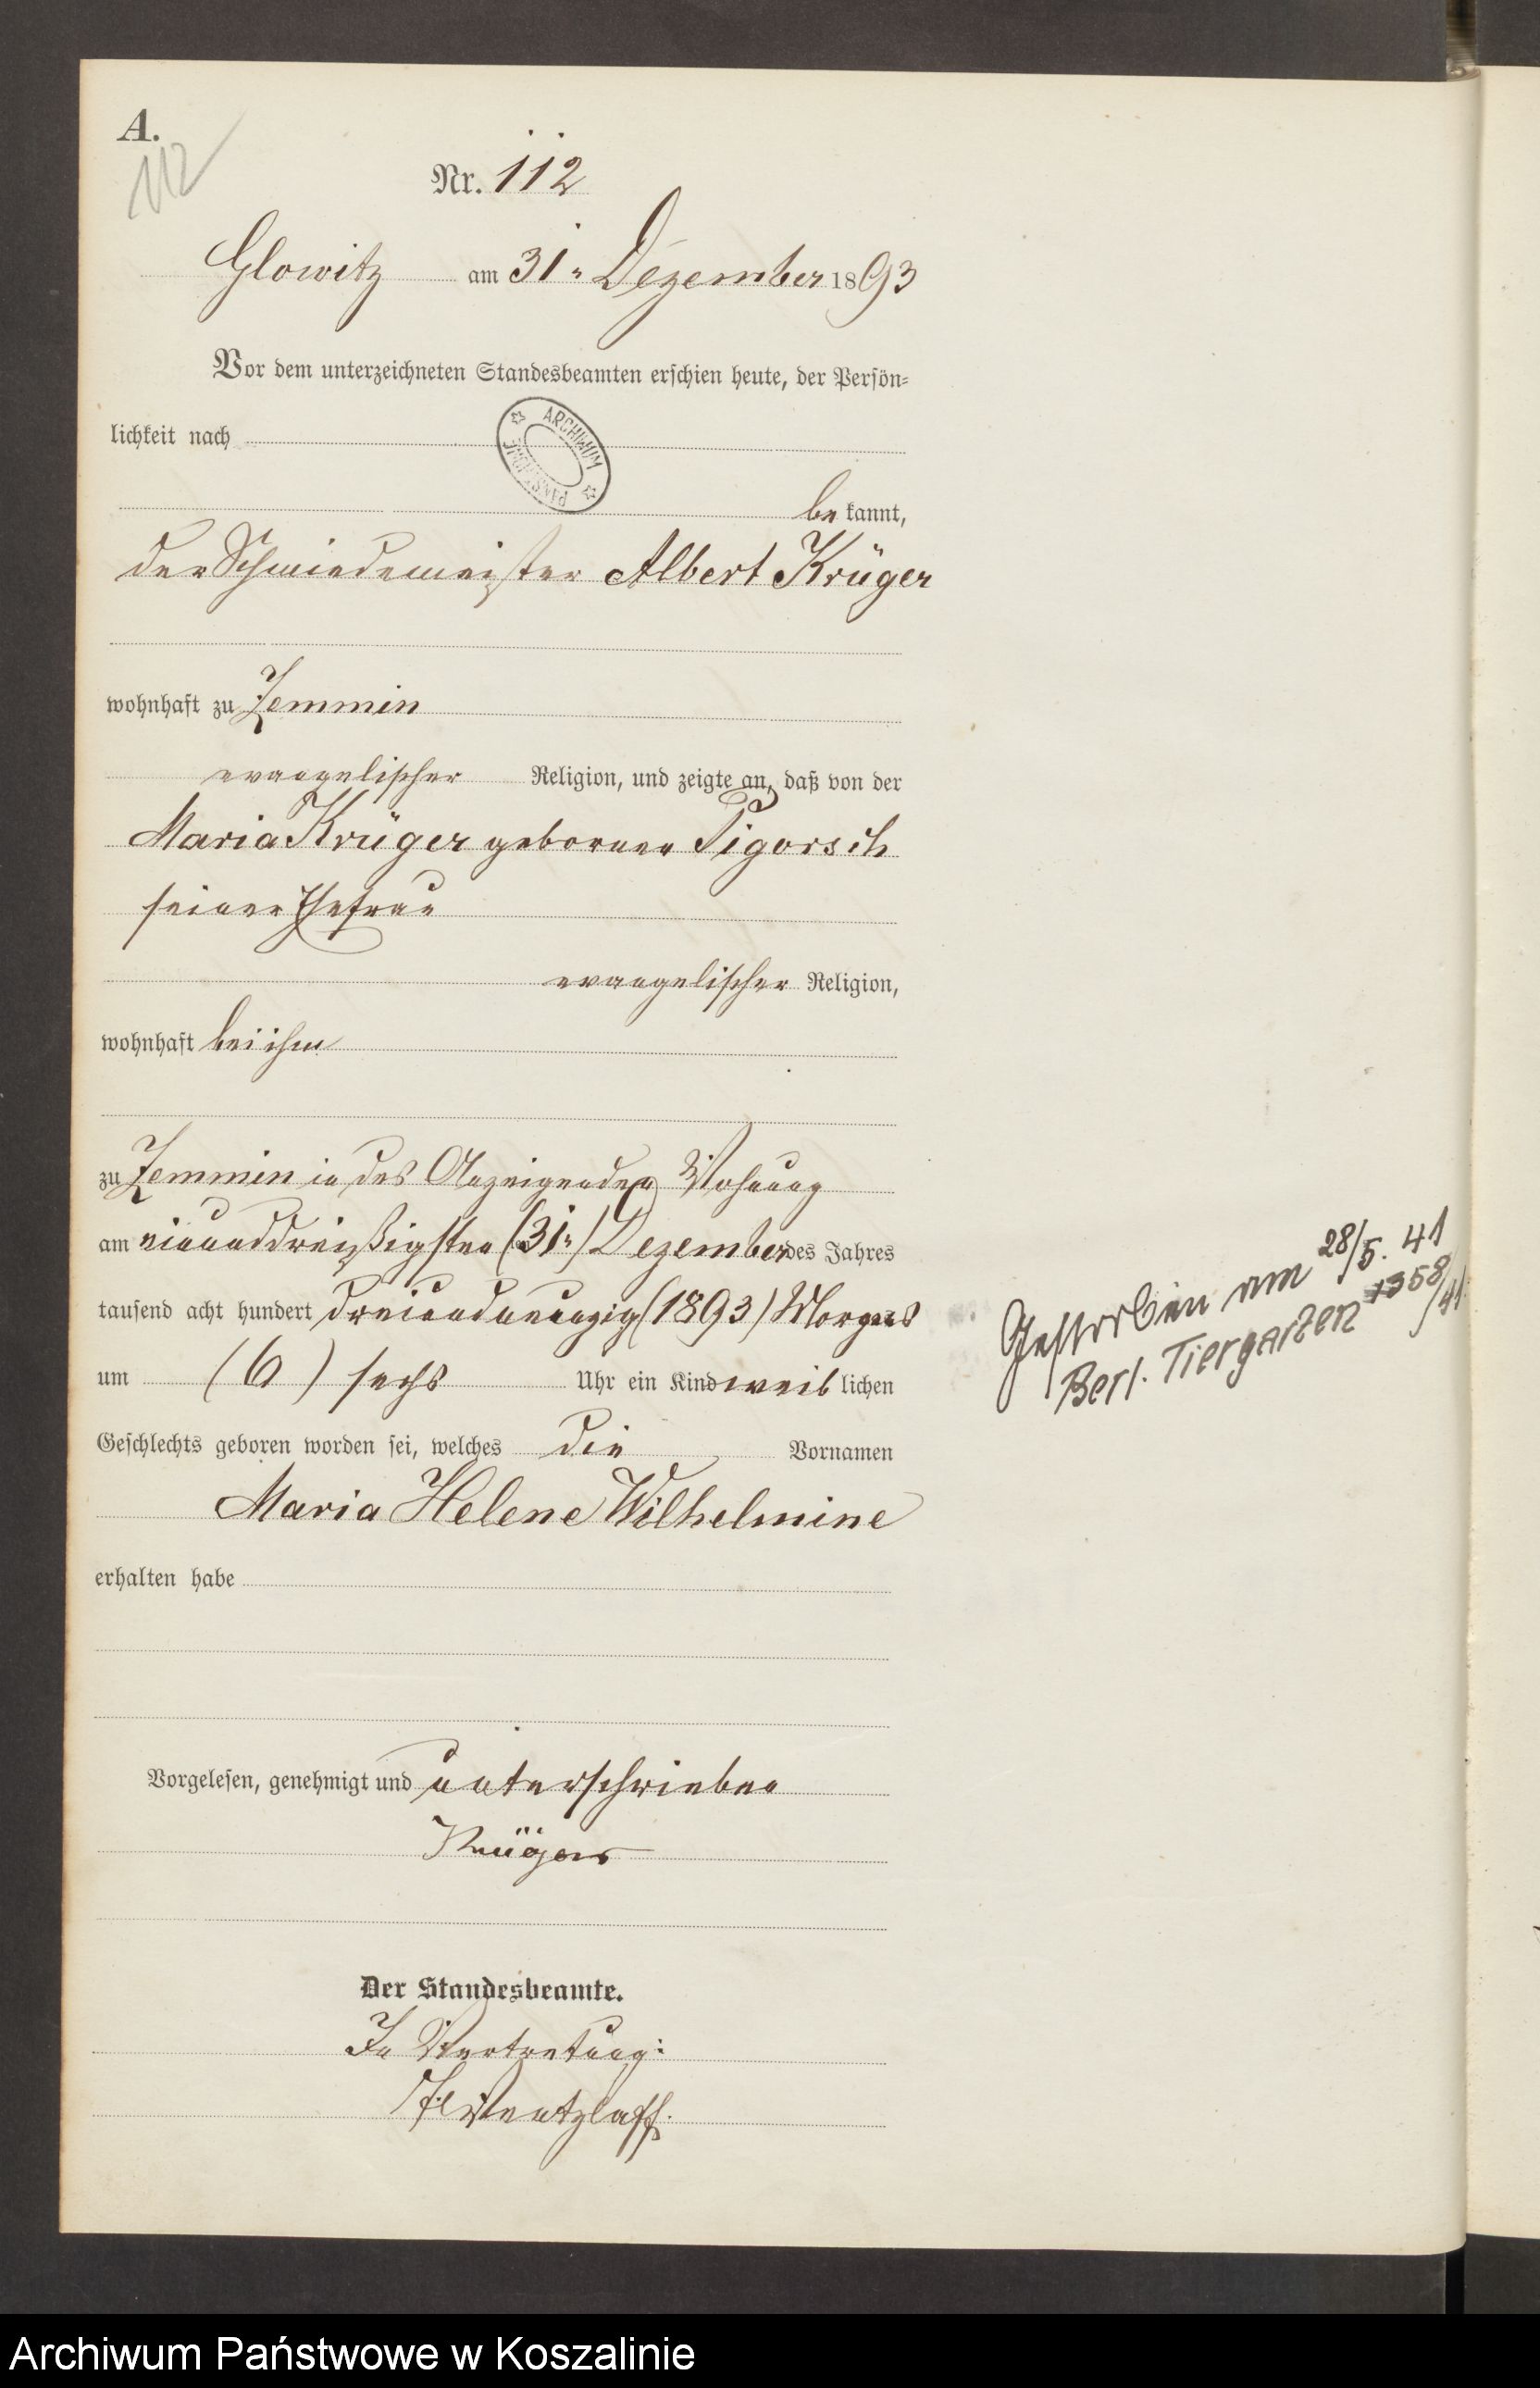 A.
112
Nr. 112
Glowitz am 31ⁿ Dezember 1893
Vor dem unterzeichneten Standesbeamten erschien heute, der Persön=
lichkeit nach
ARCHIWUM PAŃSTWOWE
be kannt,
der Schmiedemeister Albert Krüger
wohnhaft zu Zemmin
evangelischer Religion, und zeigte an, daß von der
Maria Krüger geborenen Pigorsch
seiner Ehefrau
evangelischer Religion,
wohnhaft bei ihm
zu Zemmin in des Anzeigenden Wohnung
am einunddreißigsten (31ⁿ) Dezember des Jahres
tausend acht hundert dreiundneunzig (1893) Morgens
um (6) sechs Uhr ein Kind weib lichen
Geschlechts geboren worden sei, welches die Vornamen
Maria Helene Wilhelmine
erhalten habe
Vorgelesen, genehmigt und unterschrieben
Krüger
Der Standesbeamte.
In Vertretung:
Wentzlaff.
Gestorben am 28/5. 41
Berl. Tiergarten 1358/41
Archiwum Państwowe w Koszalinie